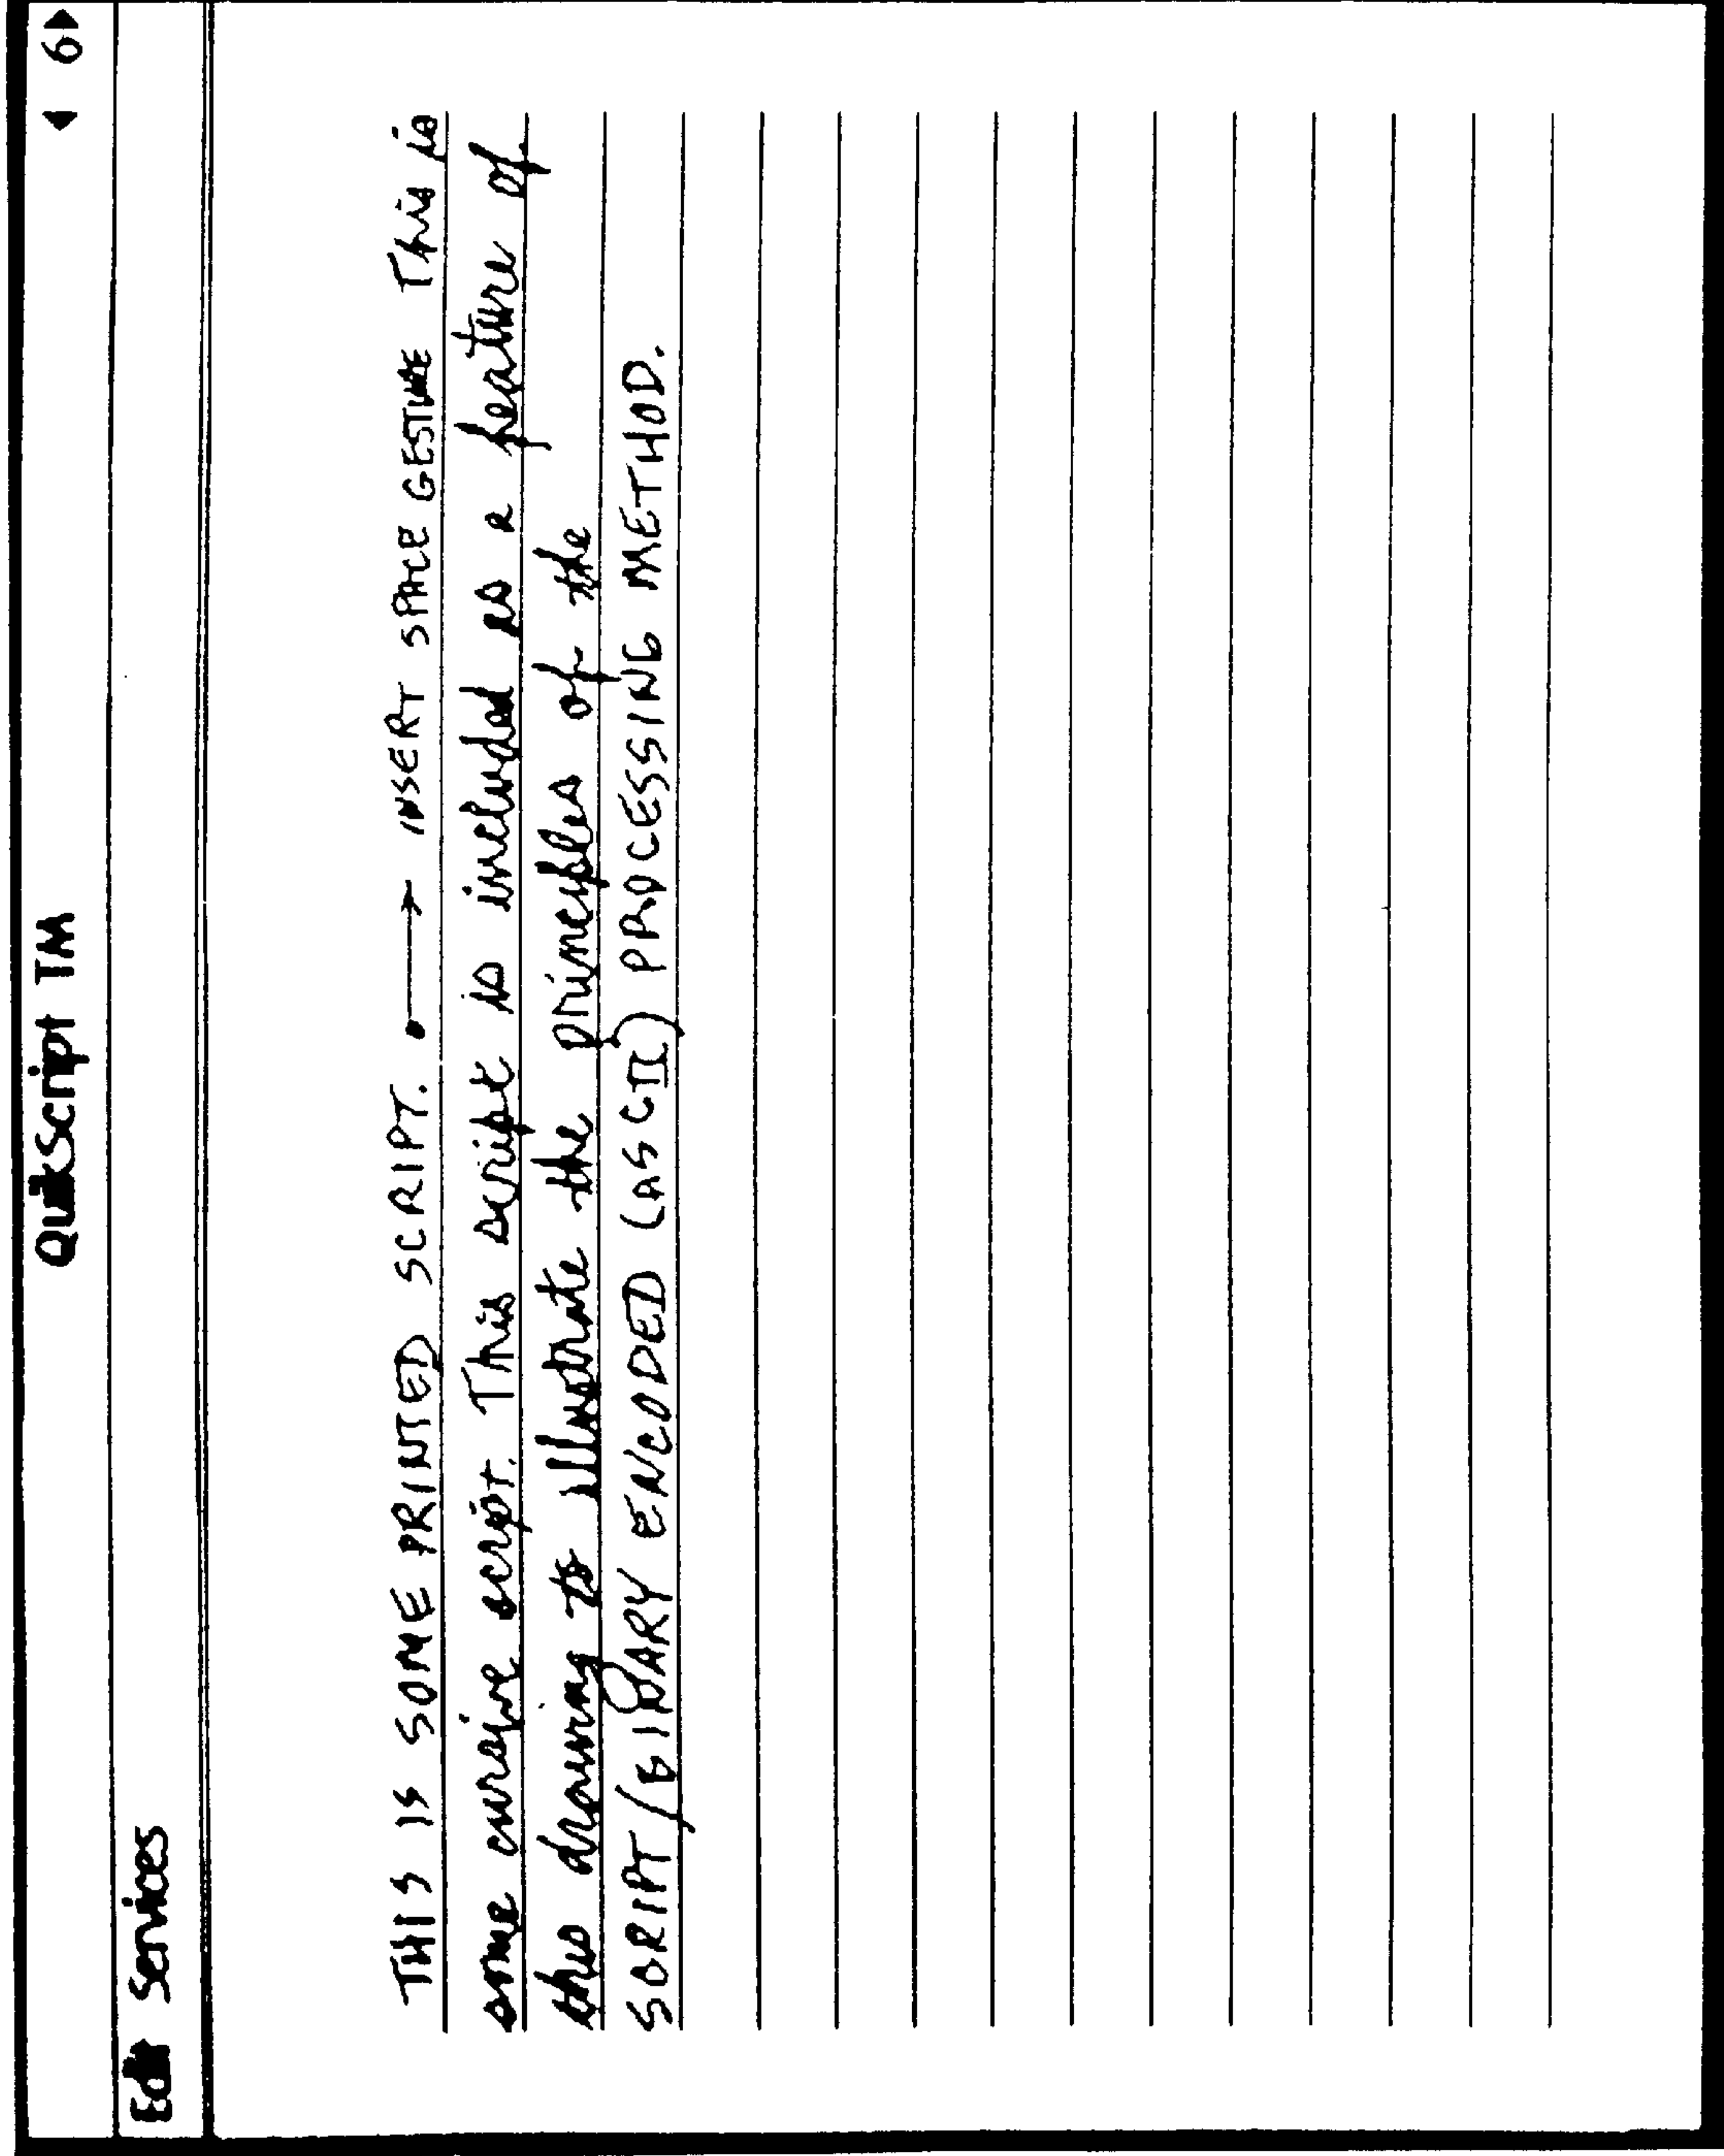 QuikScript TM ◀ 6▶
Edit Services
THIS IS SOME PRINTED SCRIPT. •→ INSERT SPACE GESTURE This is
some cursive script. This script is included as a feature of
this drawing to illustrate the principles of the
SCRIPT/BINARY ENCODED (ASCII) PROCESSING METHOD.